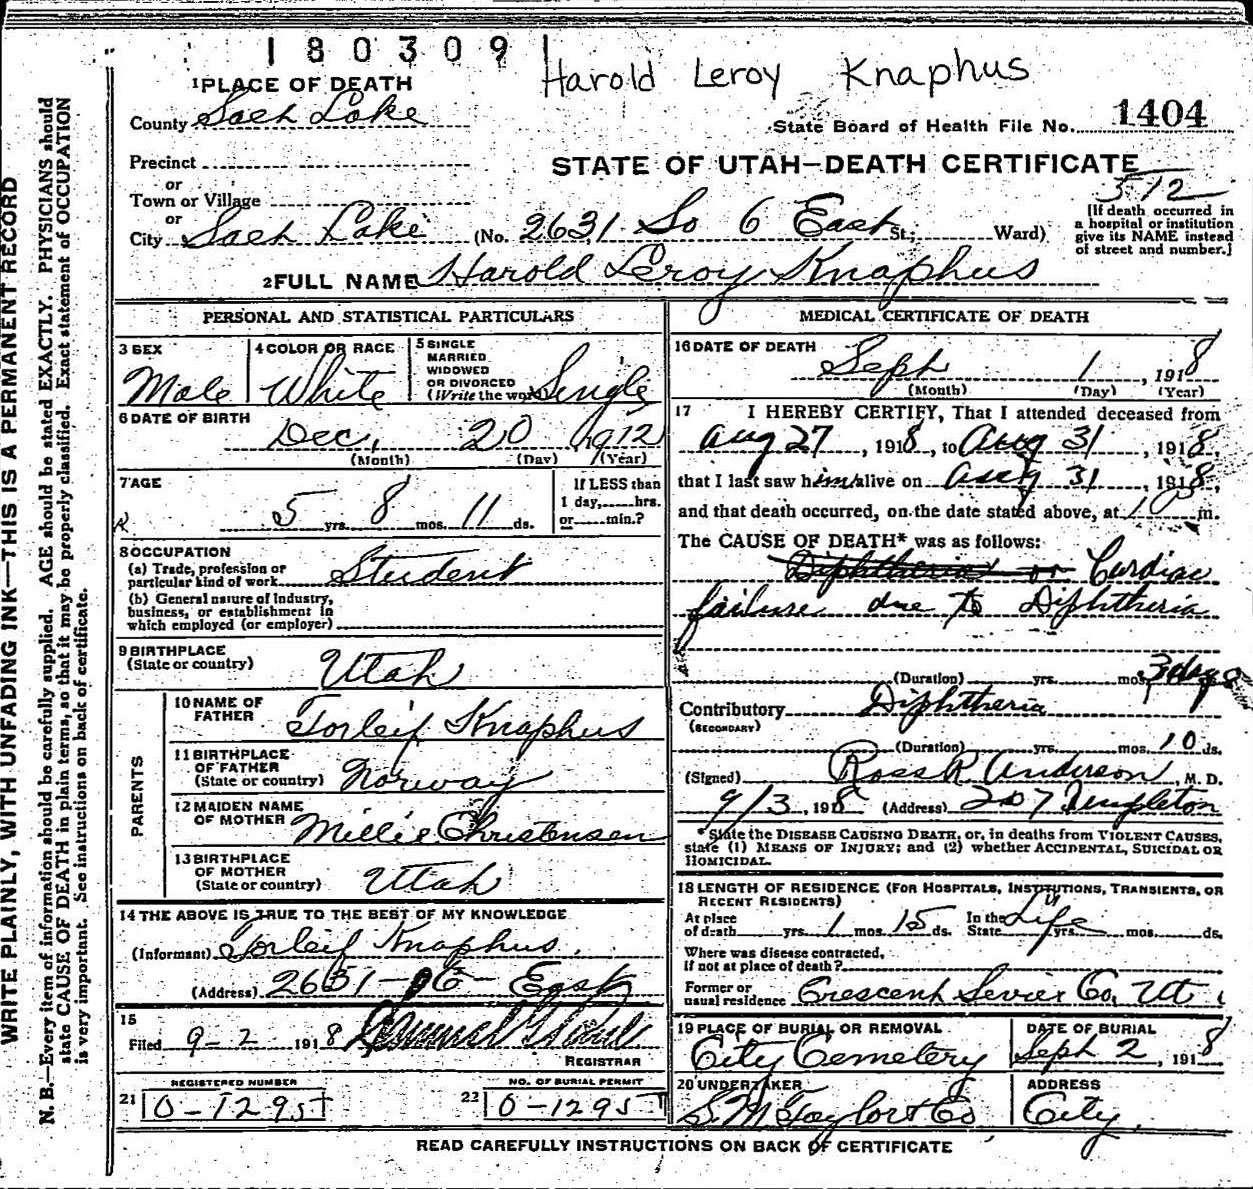 180309
Harold Leroy Knaphus
1 PLACE OF DEATH
County Salt Lake
State Board of Health File No. 1404
Precinct
STATE OF UTAH—DEATH CERTIFICATE
or
Town or Village
512
or
City Salt Lake (No. 2631 So 6 East St.; Ward)
[If death occurred in
a hospital or institution
give its NAME instead
of street and number.]
2 FULL NAME Harold Leroy Knaphus
PERSONAL AND STATISTICAL PARTICULARS
3 SEX
Male
4 COLOR OR RACE
White
5 SINGLE
MARRIED
WIDOWED
OR DIVORCED
(Write the word) Single
6 DATE OF BIRTH
Dec. 20 1912
(Month) (Day) (Year)
7 AGE
5 yrs. 8 mos. 11 ds.
If LESS than
1 day, hrs.
or min.?
8 OCCUPATION
(a) Trade, profession or
particular kind of work Student
(b) General nature of Industry,
business, or establishment in
which employed (or employer)
9 BIRTHPLACE
(State or country) Utah
PARENTS
10 NAME OF
FATHER Torleif Knaphus
11 BIRTHPLACE
OF FATHER
(State or country) Norway
12 MAIDEN NAME
OF MOTHER Millie Christensen
13 BIRTHPLACE
OF MOTHER
(State or country) Utah
14 THE ABOVE IS TRUE TO THE BEST OF MY KNOWLEDGE
(Informant) Torleif Knaphus
(Address) 2631 - 6 - East
15
Filed 9-2 1918
REGISTRAR
REGISTERED NUMBER
21 0-1295
NO. OF BURIAL PERMIT
22 0-1295
MEDICAL CERTIFICATE OF DEATH
16 DATE OF DEATH
Sept 1, 1918
(Month) (Day) (Year)
17 I HEREBY CERTIFY, That I attended deceased from
Aug 27, 1918, to Aug 31, 1918,
that I last saw him alive on Aug 31, 1918,
and that death occurred, on the date stated above, at 10 m.
The CAUSE OF DEATH* was as follows:
Diphtheria or Cardiac
failure due to Diphtheria
(Duration) yrs. mos. 3 days
Contributory Diphtheria
(SECONDARY)
(Duration) yrs. mos. 10 ds.
(Signed) Ross R Anderson, M. D.
9/3, 1918 (Address) 207 Templeton
*State the DISEASE CAUSING DEATH, or, in deaths from VIOLENT CAUSES,
state (1) MEANS OF INJURY; and (2) whether ACCIDENTAL, SUICIDAL OR
HOMICIDAL.
18 LENGTH OF RESIDENCE (FOR HOSPITALS, INSTITUTIONS, TRANSIENTS, OR
RECENT RESIDENTS)
At place
of death yrs. 1 mos. 15 ds. In the
State Life yrs. mos. ds.
Where was disease contracted,
if not at place of death?
Former or
usual residence Crescent Sevier Co. Ut
19 PLACE OF BURIAL OR REMOVAL
City Cemetery
DATE OF BURIAL
Sept 2, 1918
20 UNDERTAKER
S. M. Taylor & Co
ADDRESS
City
READ CAREFULLY INSTRUCTIONS ON BACK OF CERTIFICATE
WRITE PLAINLY, WITH UNFADING INK—THIS IS A PERMANENT RECORD
N. B.—Every item of information should be carefully supplied. AGE should be stated EXACTLY. PHYSICIANS should
state CAUSE OF DEATH in plain terms, so that it may be properly classified. Exact statement of OCCUPATION
is very important. See instructions on back of certificate.